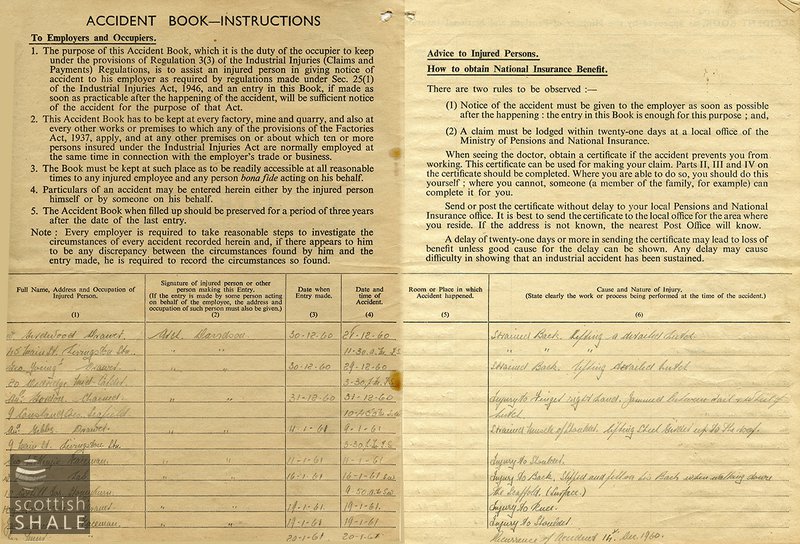 ACCIDENT BOOK—INSTRUCTIONS
To Employers and Occupiers.
1. The purpose of this Accident Book, which it is the duty of the occupier to keep
under the provisions of Regulation 3(3) of the Industrial Injuries (Claims and
Payments) Regulations, is to assist an injured person in giving notice of
accident to his employer as required by regulations made under Sec. 25(1)
of the Industrial Injuries Act, 1946, and an entry in this Book, if made as
soon as practicable after the happening of the accident, will be sufficient
notice of the accident for the purpose of that Act.
2. This Accident Book has to be kept at every factory, mine and quarry, and also at
every other works or premises to which any of the provisions of the Factories
Act, 1937, apply, and at any other premises on or about which ten or more
persons insured under the Industrial Injuries Act are normally employed at
the same time in connection with the employer's trade or business.
3. The Book must be kept at such place as to be readily accessible at all reasonable
times to any injured employee and any person bona fide acting on his behalf.
4. Particulars of an accident may be entered herein either by the injured person
himself or by someone on his behalf.
5. The Accident Book when filled up should be preserved for a period of three years
after the date of the last entry.
Note : Every employer is required to take reasonable steps to investigate the
circumstances of every accident recorded herein and, if there appears to him
to be any discrepancy between the circumstances found by him and the
entry made, he is required to record the circumstances so found.
Advice to Injured Persons.
How to obtain National Insurance Benefit.
There are two rules to be observed :—
(1) Notice of the accident must be given to the employer as soon as possible
after the happening : the entry in this Book is enough for this purpose ; and,
(2) A claim must be lodged within twenty-one days at a local office of the
Ministry of Pensions and National Insurance.
When seeing the doctor, obtain a certificate if the accident prevents you from
working. This certificate can be used for making your claim. Parts II, III and IV on
the certificate should be completed. Where you are able to do so, you should do this
yourself ; where you cannot, someone (a member of the family, for example) can
complete it for you.
Send or post the certificate without delay to your local Pensions and National
Insurance office. It is best to send the certificate to the local office for the area where
you reside. If the address is not known, the nearest Post Office will know.
A delay of twenty-one days or more in sending the certificate may lead to loss of
benefit unless good cause for the delay can be shown. Any delay may cause
difficulty in showing that an industrial accident has been sustained.
Full Name, Address and Occupation of
Injured Person.
(1)
Signature of injured person or other
person making this Entry.
(If the entry is made by some person acting
on behalf of the employee, the address and
occupation of such person must also be given.)
(2)
Date when
Entry made.
(3)
Date and
time of
Accident.
(4)
Room or Place in which
Accident happened.
(5)
Cause and Nature of Injury.
(State clearly the work or process being performed at the time of the accident.)
(6)
Drawer Davidson 30-12-60 28-12-60 Strained Back. Lifting a derailed hutch
Main St. Livingston Stn. " " 11-30 " " "
Geo Young Drawer " " 30-12-60 29-12-60 Strained Back. Lifting derailed hutch
20 Mid Calder 3-30
Gordon, " " 31-12-60 31-12-60 Injury to Finger right hand. Jammed between
9 Seafield hutch.
Gibb, Drawer " " 11-1-61 9-1-61 Strained muscle of Shoulder. Lifting Steel up to the roof.
9 Main St. Livingston Stn. 3-30
" " 11-1-61 11-1-61 Injury to Shoulder.
" " 16-1-61 16-1-61 Injury to Back. Slipped and fell on his Back when walking down
9-50 the Scaffold. (Surface)
" " 19-1-61 19-1-61 Injury to Knee.
" " 19-1-61 19-1-61 Injury to Shoulder.
20-1-61 20-1-61 Recurrence of Accident 14th Dec. 1960.
scottish
SHALE